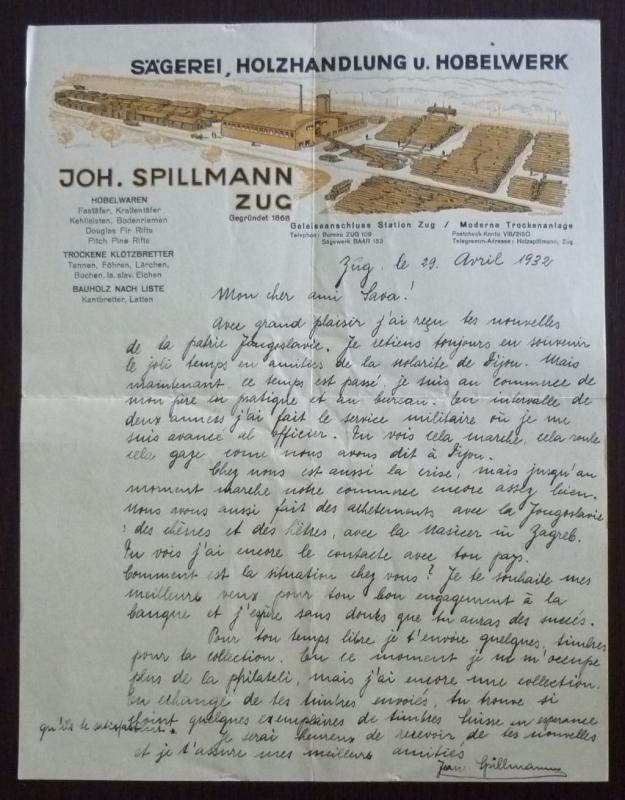 SÄGEREI, HOLZHANDLUNG U. HOBELWERK
JOH. SPILLMANN
ZUG
Gegründet 1868
HOBELWAREN
Fastäfer, Krallentäfer
Kehlleisten, Bodenriemen
Douglas Fir Rifts
Pitch Pine Rifts
TROCKENE KLOTZBRETTER
Tannen, Föhren, Lärchen,
Buchen, la. slav. Eichen
BAUHOLZ NACH LISTE
Kantbretter, Latten
Geleiseanschluss Station Zug / Moderne Trockenanlage
Telephon: Bureau ZUG 109
Sägewerk BAAR 153
Postcheck-Konto VIII/2150
Telegramm-Adresse: Holzspillmann, Zug
Zug, le 29. Avril 1932
Mon cher ami Sava!
Avec grand plaisir j'ai reçu tes nouvelles
de la patrie Jougoslavie. Je retiens toujours en souvenir
le joli temps en amitiés de la scolarité de Dijon. Mais
maintenant, ce temps est passé, je suis au commerce de
mon père en pratique et au bureau. En intervalle de
deux années j'ai fait le service militaire où je me
suis avancé et officier. Tu vois cela marche, cela roule
cela gaze, come nous avons dit à Dijon.
Chez nous est aussi la crise, mais jusqu'au
moment marche notre commerce encore assez bien.
Nous vous aussi fait des achetements avec la Jougoslavie
: des chênes et des hêtres, avec la Nasicer in Zagreb.
Tu vois j'ai encore le contacte avec ton pays.
Comment est la situation chez vous? Je te souhaite mes
meilleurs veux pour ton bon engagement à la
banque et j'espère sans douts que tu auras des succès.
Pour ton temps libre je t'envoie quelques timbres
pour ta collection. En ce moment je ne m'occupe
plus de la philateli, mais j'ai encore une collection.
En échange de tes timbres envoiés, tu trouve si
joint quelques exemplaires de timbres Suisse en esperance
qu'ils te satisfassent.
Je serai heureux de recevoir de tes nouvelles
et je t'assure mes meilleurs amitiés
Jean Spillmann